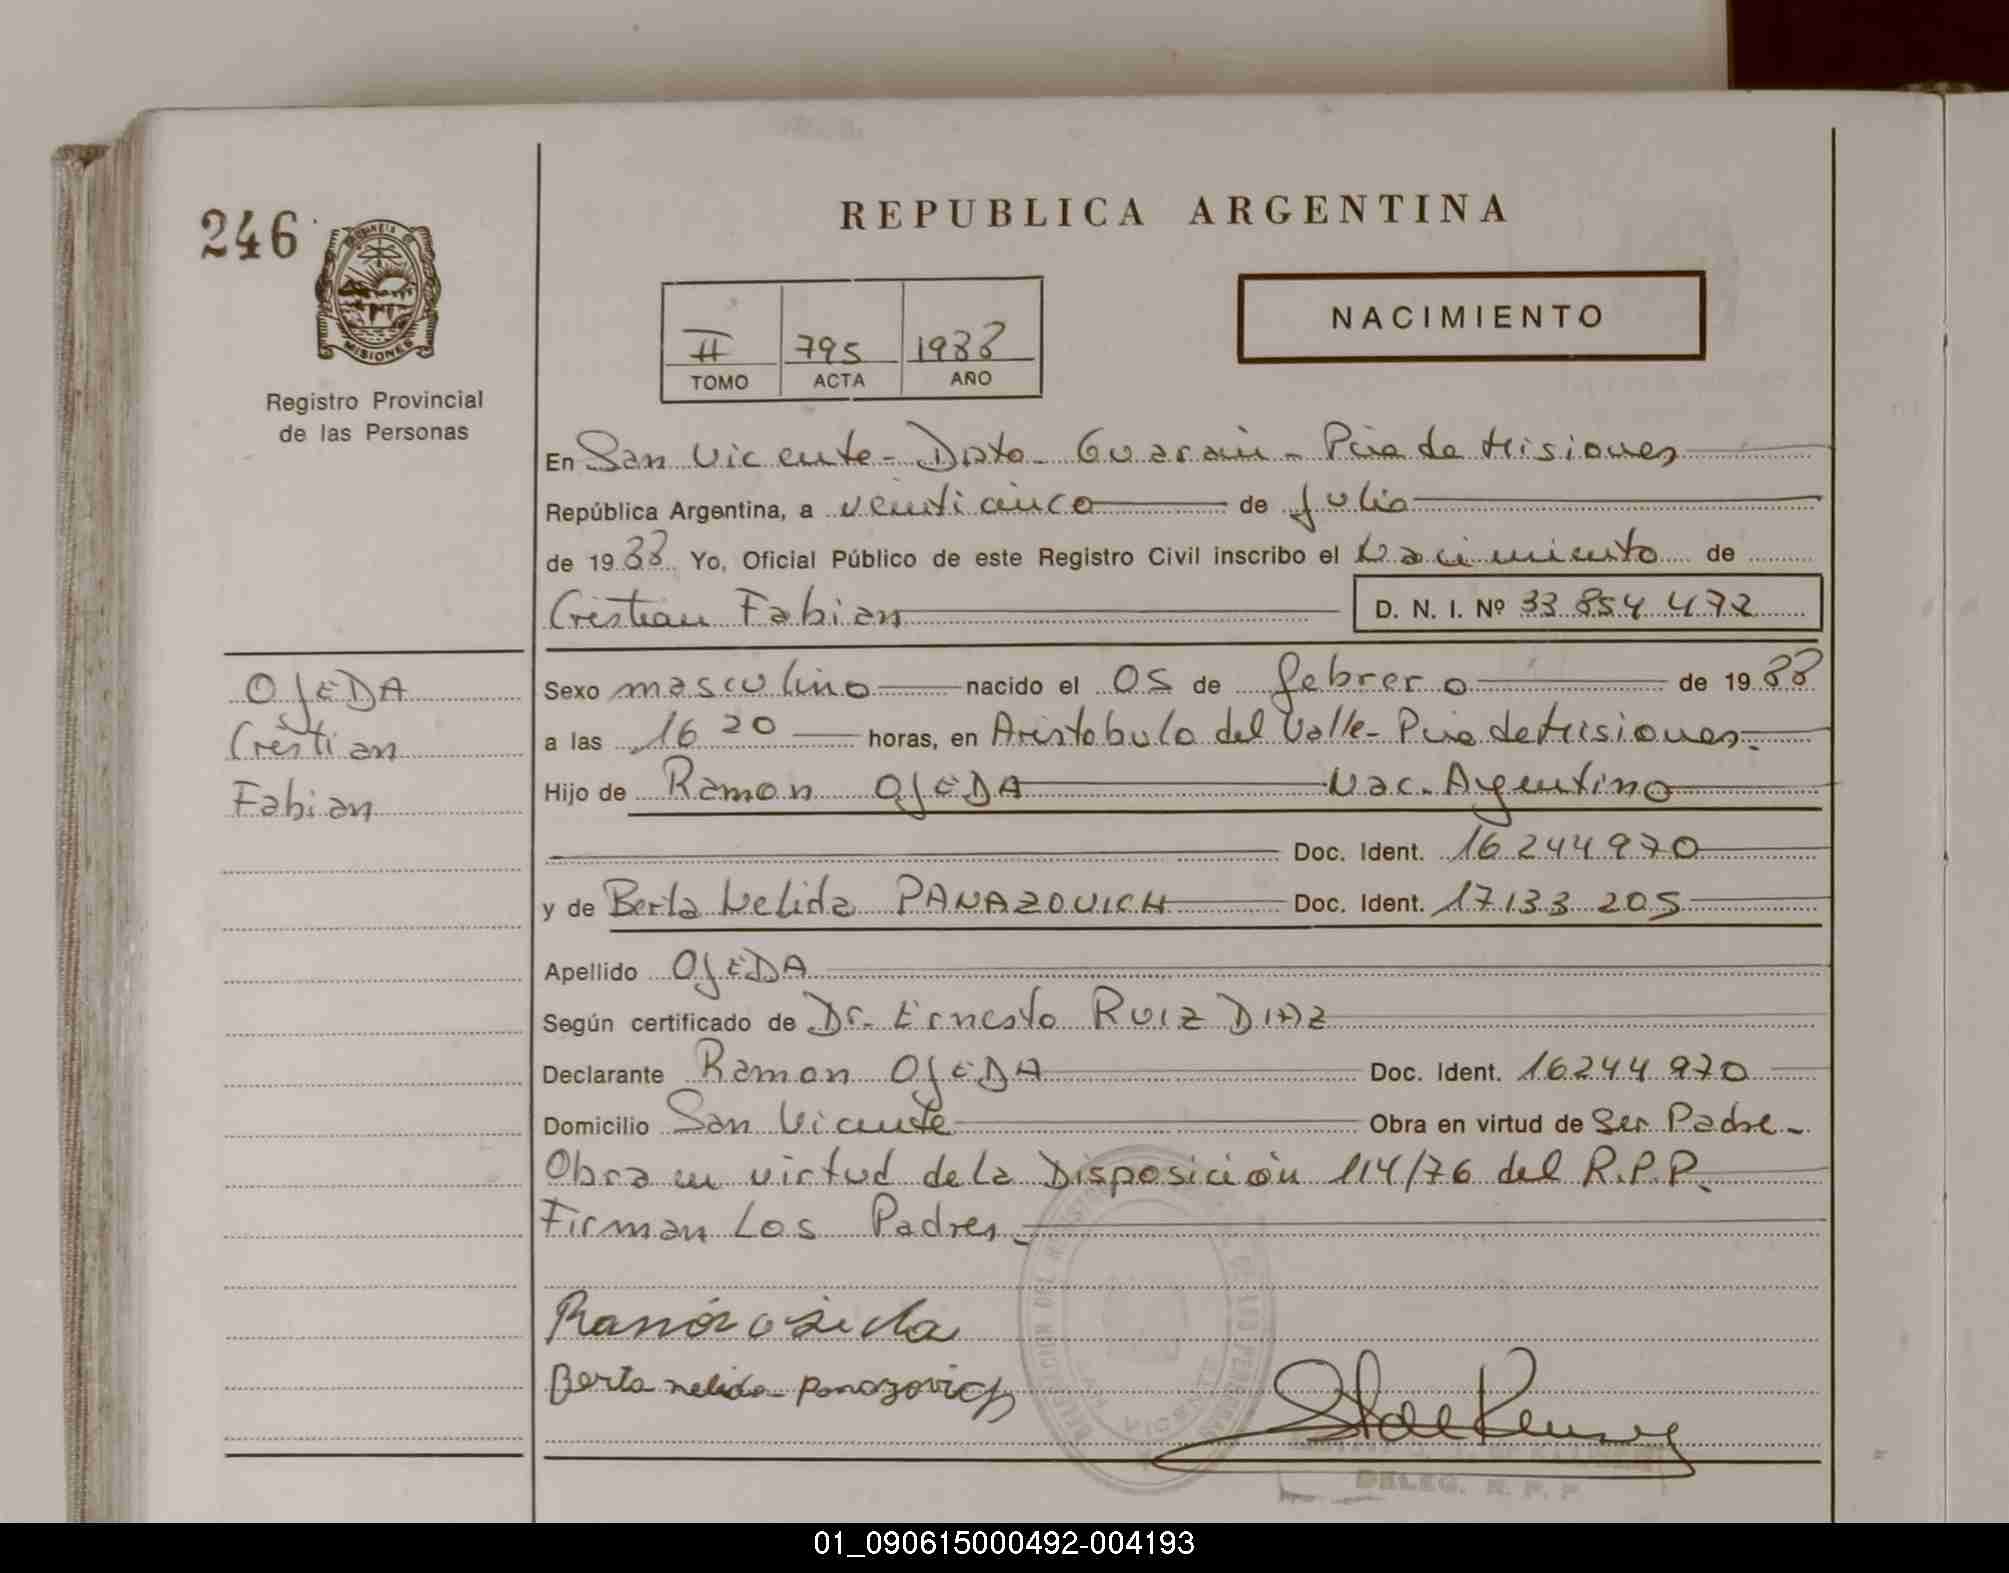 246
MISIONES
Registro Provincial
de las Personas
REPUBLICA ARGENTINA
II 795 1988
TOMO ACTA AÑO
NACIMIENTO
En San Vicente - Dpto - Guaraní - Pcia de Misiones
República Argentina, a veinticinco de Julio
de 1988 Yo, Oficial Público de este Registro Civil inscribo el Nacimiento de
Cristian Fabian D. N. I. Nº 33 854 472
OJEDA
Cristian
Fabian
Sexo masculino nacido el 05 de febrero de 1988
a las 16 20 horas, en Aristobulo del Valle - Pcia de Misiones.
Hijo de Ramon OJEDA Nac. Argentino
Doc. Ident. 16 244 970
y de Berta Nelida PANAZOVICH Doc. Ident. 17 133 205
Apellido OJEDA
Según certificado de Dr. Ernesto RUIZ DIAZ
Declarante Ramon OJEDA Doc. Ident. 16 244 970
Domicilio San Vicente Obra en virtud de Ser Padre -
Obra en virtud de la Disposición 114/76 del R.P.P.
Firman Los Padres -
Ramón ojeda
Berta nelida panazovich
DELEG. R. P. P.
01_090615000492-004193